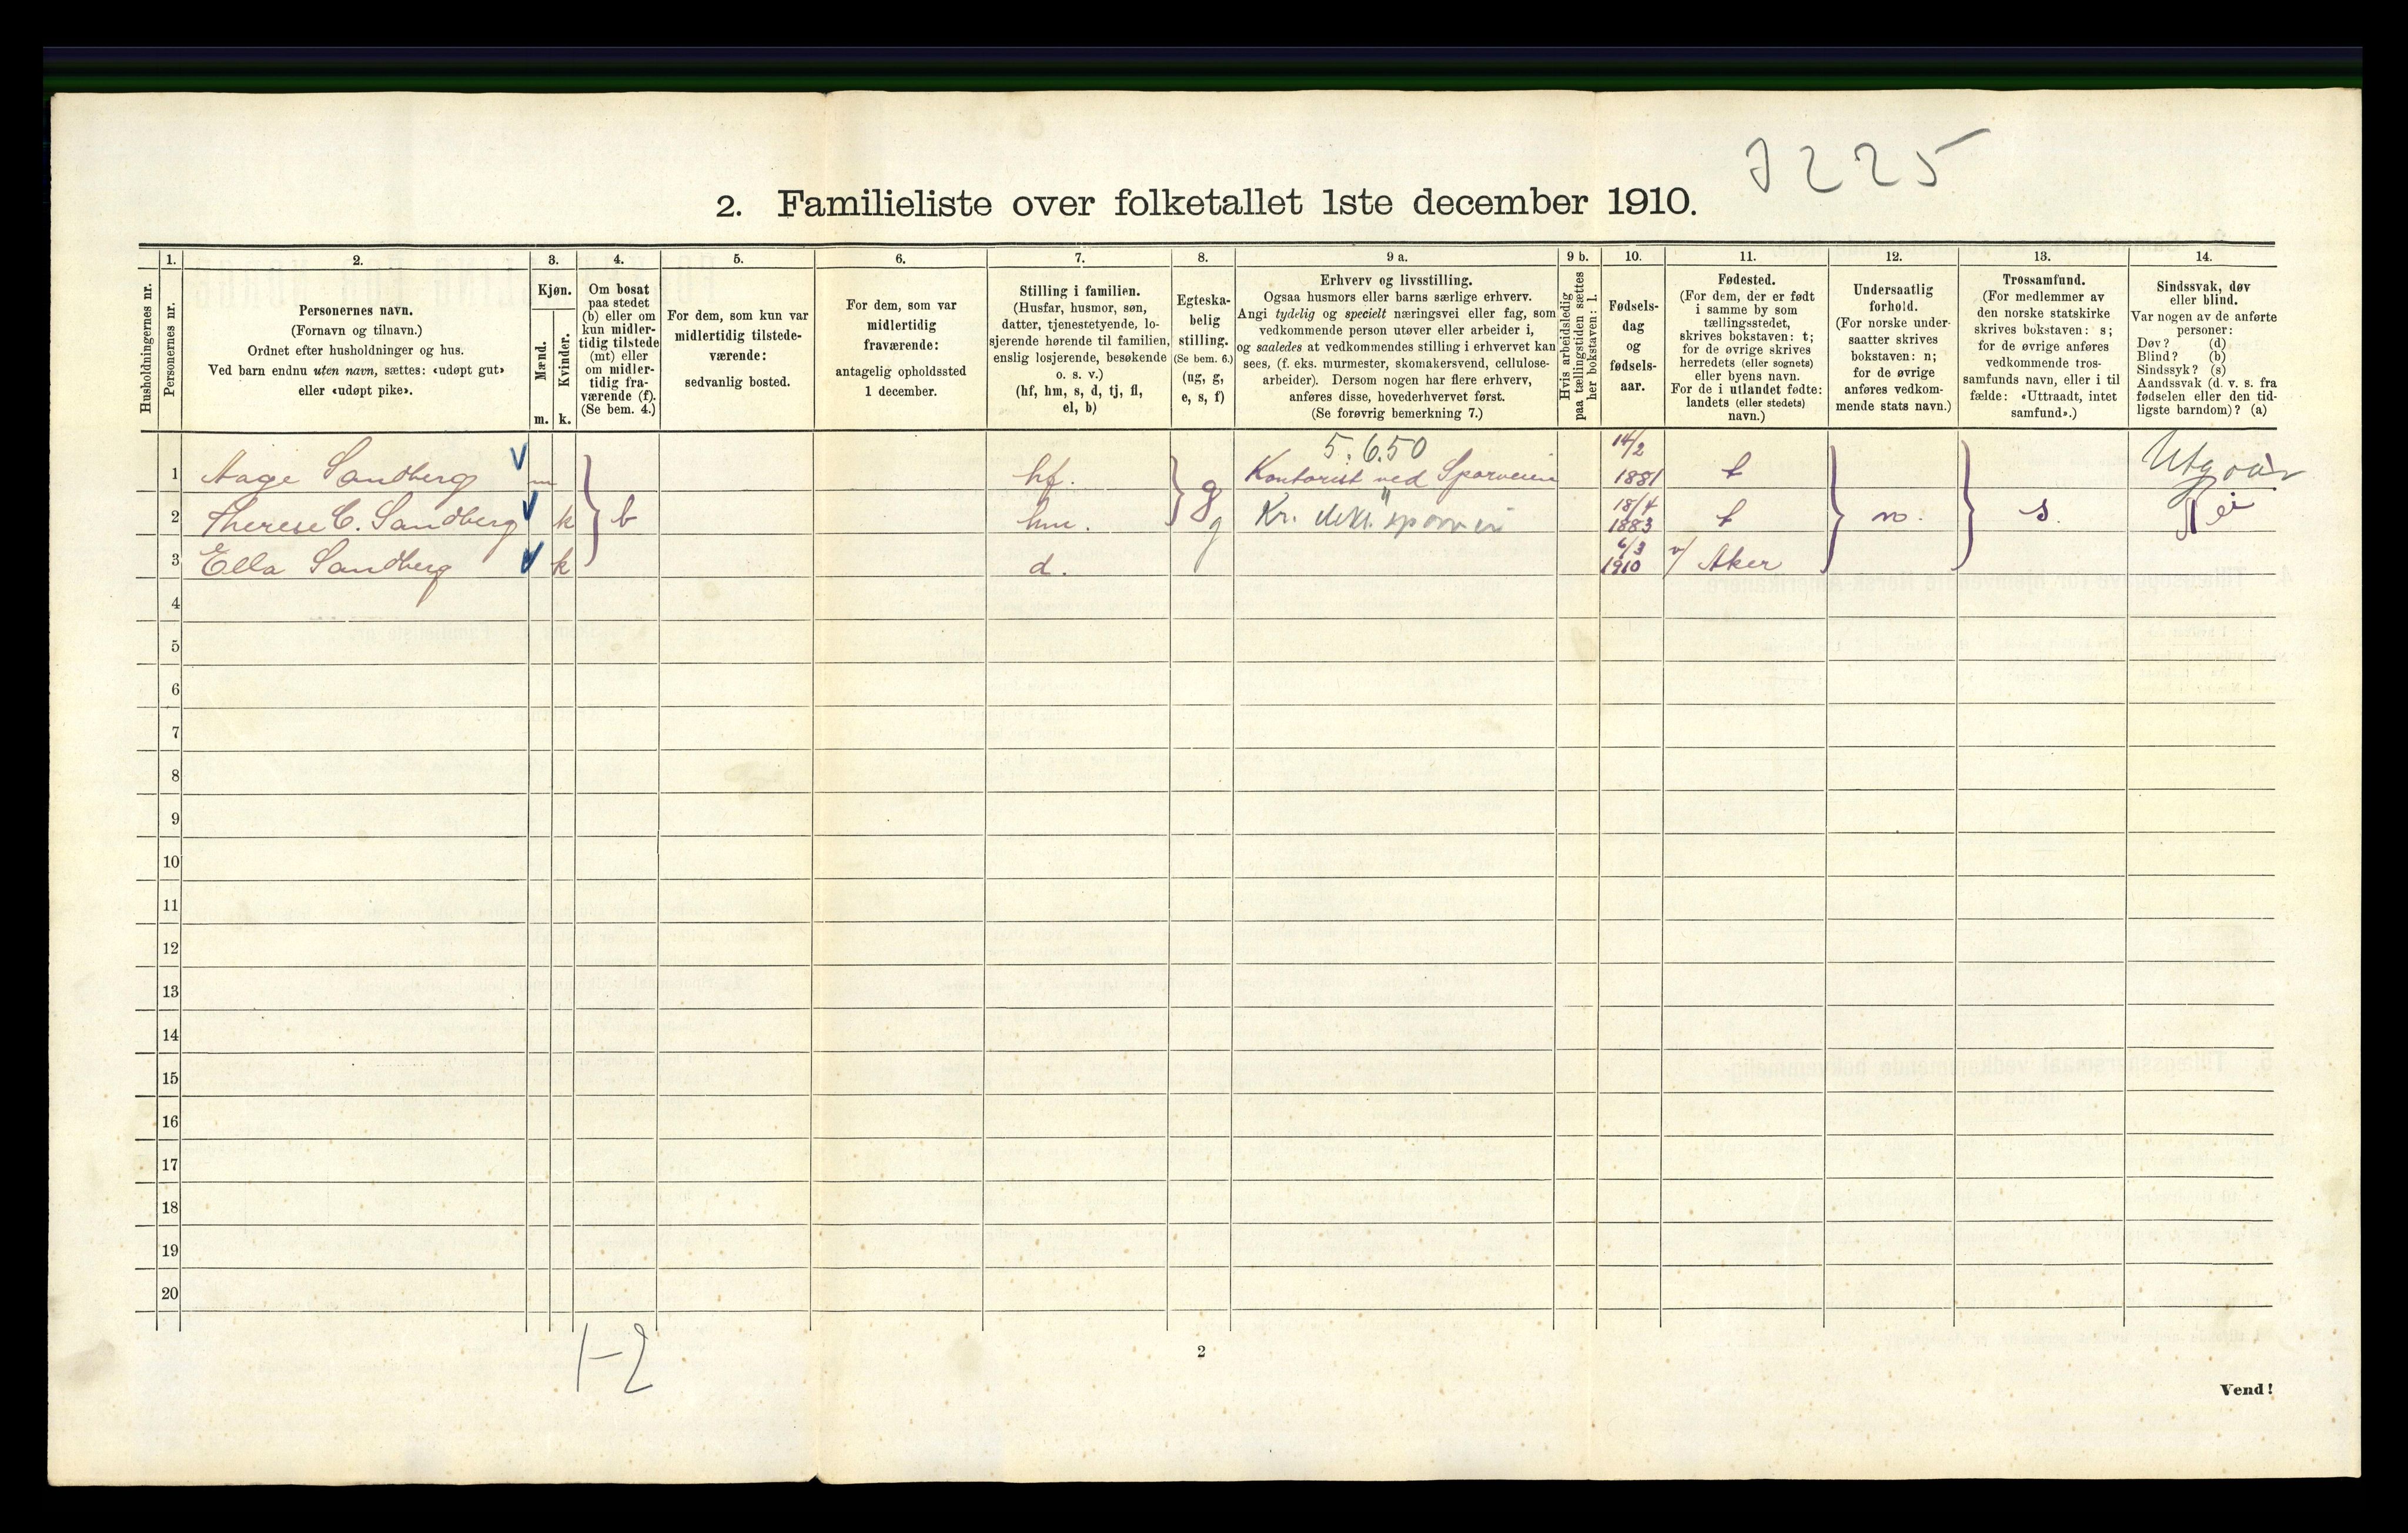 J225
2. Familieliste over folketallet 1ste december 1910.
Husholdningernes nr.
1.
Personernes nr.
2.
Personernes navn.
(Fornavn og tilnavn.)
Ordnet efter husholdninger og hus.
Ved barn endnu uten navn, sættes: «udøpt gut»
eller «udøpt pike».
3.
Kjøn.
Mænd.
m.
Kvinder.
k.
4.
Om bosat
paa stedet
(b) eller om
kun midler-
tidig tilstede
(mt) eller
om midler-
tidig fra-
værende (f).
(Se bem. 4.)
5.
For dem, som kun var
midlertidig tilstede-
værende:
sedvanlig bosted.
6.
For dem, som var
midlertidig
fraværende:
antagelig opholdssted
1 december.
7.
Stilling i familien.
(Husfar, husmor, søn,
datter, tjenestetyende, lo-
sjerende hørende til familien,
enslig losjerende, besøkende
o. s. v.)
(hf, hm, s, d, tj, fl,
el, b)
8.
Egteska-
belig
stilling.
(Se bem. 6.)
(ug, g,
e, s, f)
9 a.
Erhverv og livsstilling.
Ogsaa husmors eller barns særlige erhverv.
Angi tydelig og specielt næringsvei eller fag, som
vedkommende person utøver eller arbeider i,
og saaledes at vedkommendes stilling i erhvervet kan
sees, (f. eks. murmester, skomakersvend, cellulose-
arbeider). Dersom nogen har flere erhverv,
anføres disse, hovederhvervet først.
(Se forøvrig bemerkning 7.)
9 b.
Hvis arbeidsledig
paa tællingstiden sættes
her bokstaven: l.
10.
Fødsels-
dag
og
fødsels-
aar.
11.
Fødested.
(For dem, der er født
i samme by som
tællingsstedet,
skrives bokstaven: t;
for de øvrige skrives
herredets (eller sognets)
eller byens navn.
For de i utlandet fødte:
landets (eller stedets)
navn.)
12.
Undersaatlig
forhold.
(For norske under-
saatter skrives
bokstaven: n;
for de øvrige
anføres vedkom-
mende stats navn.)
13.
Trossamfund.
(For medlemmer av
den norske statskirke
skrives bokstaven: s;
for de øvrige anføres
vedkommende tros-
samfunds navn, eller i til
fælde: «Uttraadt, intet
samfund».)
14.
Sindssvak, døv
eller blind.
Var nogen av de anførte
personer:
Døv? (d)
Blind? (b)
Sindssyk? (s)
Aandssvak (d. v. s. fra
fødselen eller den tid-
ligste barndom)? (a)
5.6.50
1 Aage Sandberg m hf. g Kontorist ved Sporveien 14/2 1881 t
2 Therese C. Sandberg k b hm. g Kr. elektr. sporvei 18/4 1883 t n. s. Nei
3 Ella Sandberg k d. 6/3 1910 v/ Aker
4
5
6
7
8
9
10
11
12
13
14
15
16
17
18
19
20
1-2
2
Vend!